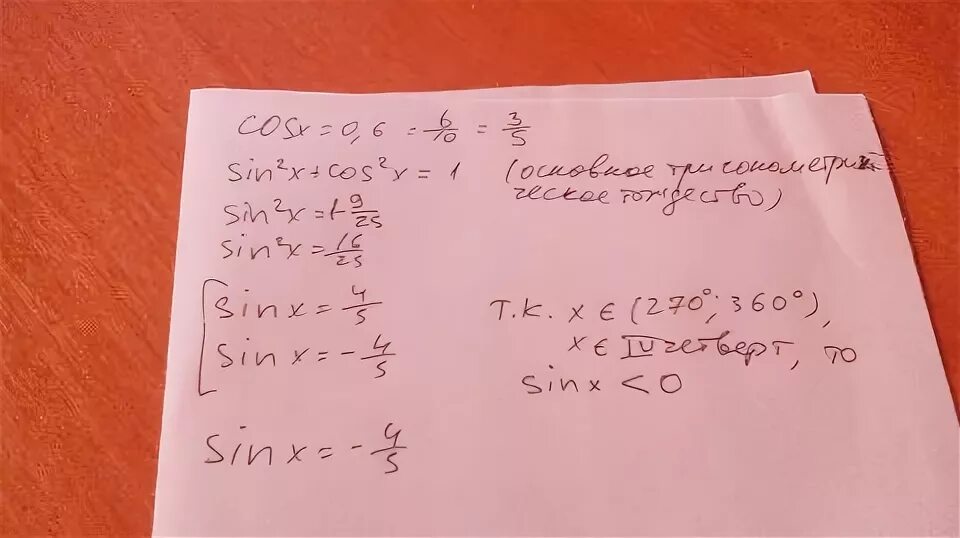 cosx = 0,6 = 6/10 = 3/5
sin²x + cos²x = 1 (основное тригонометри
ческое тождество)
sin²x = 1 - 9/25
sin²x = 16/25
[ sin x = 4/5
sin x = - 4/5
Т.К. x ∈ (270°; 360°),
x ∈ IV четверт, то
sin x < 0
sin x = - 4/5